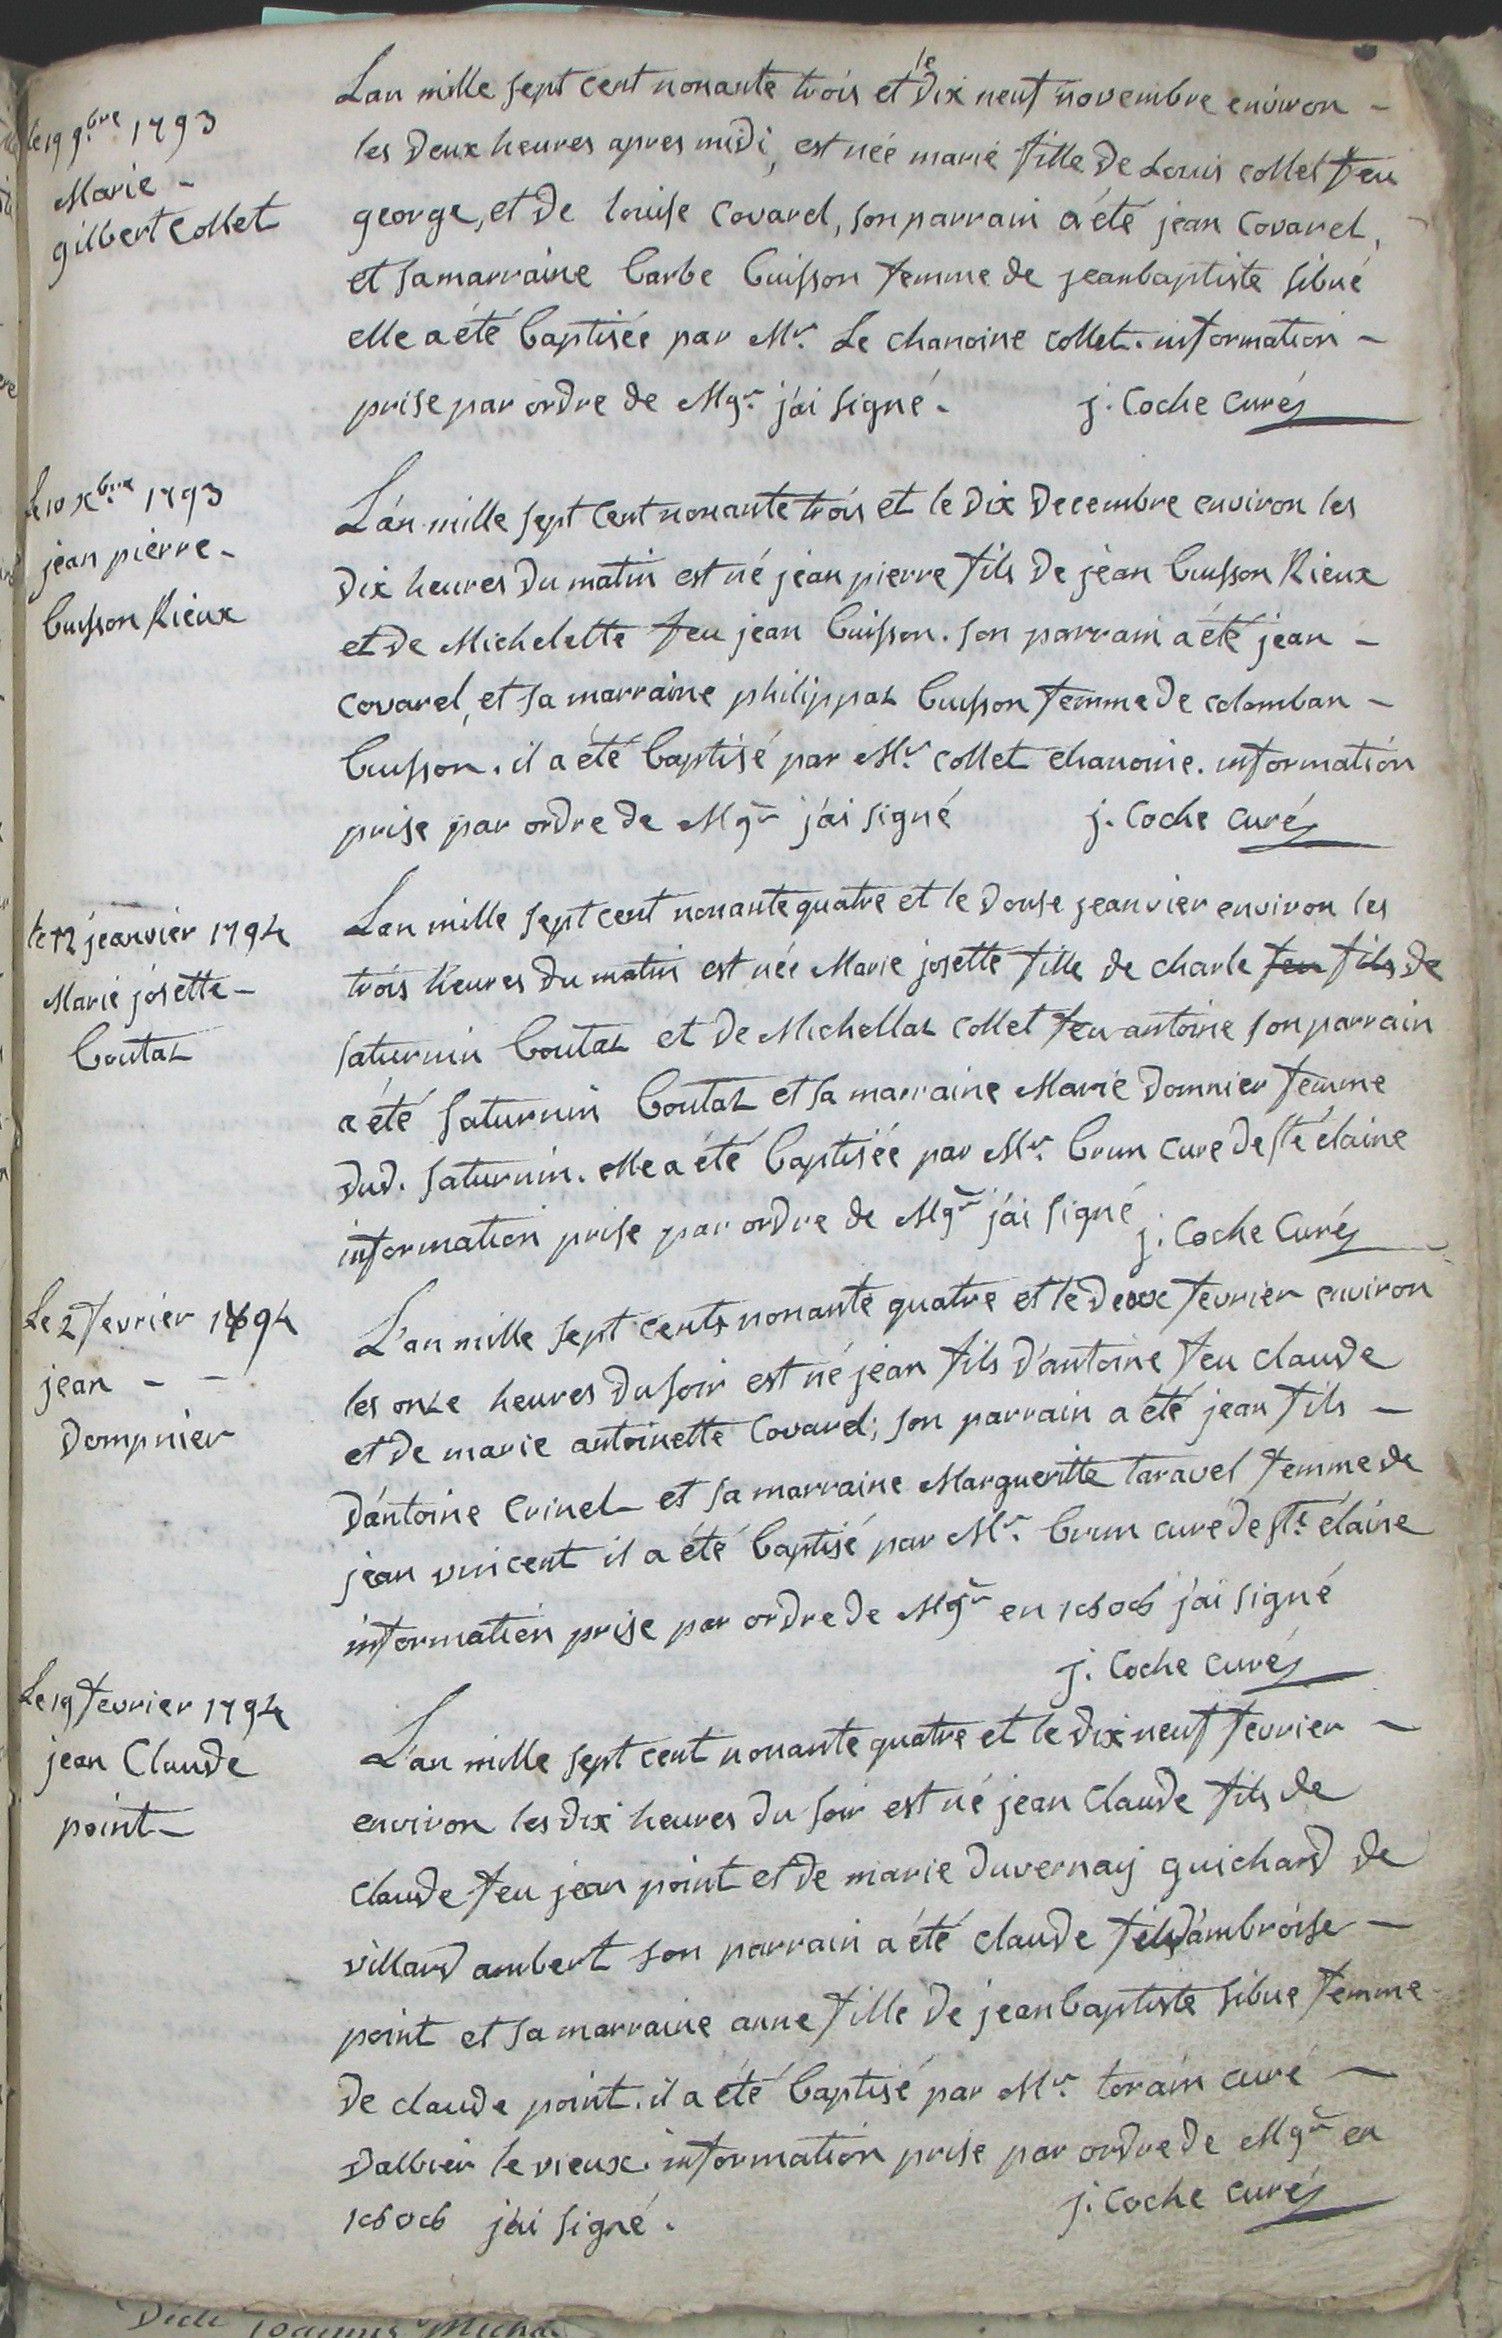 le 19 9.bre 1793
Marie -
gilbert collet
Lan mille sept cent nonante trois et le Dix neuf novembre environ -
les Deux heures apres midi, est née marie fille De Louis collet feu
george, et De louise Covarel, son parrain a été jean Covarel,
et sa marraine barbe buisson femme de jeanbaptiste sibué
elle a été baptisée par Mr. Le chanoine collet. information -
prise par ordre de Mgr. j'ai signé. j. Coche curé
Le 10 xbre 1793
jean pierre -
buisson Rieux
L'an mille sept cent nonante trois et le Dix Decembre environ les
Dix heures Du matin est né jean pierre fils De jean buisson Rieux
et De Michelette feu jean buisson. son parrain a été jean -
covarel, et sa marraine philippaz buisson femme De colomban -
buisson. il a été baptisé par Mr. collet chanoine. information
prise par ordre de Mgr j'ai signé j. Coche curé
le 12 jeanvier 1794
Marie josette -
boutaz
Lan mille sept cent nonante quatre et le Douse jeanvier environ les
trois heures Du matin est née Marie josette fille de charle feu fils De
saturnin boutaz et De Michellaz collet feu antoine son parrain
a été saturnin boutaz et sa marraine Marie Domnier femme
Dud. saturnin. elle a été baptisée par Mr. brun curé De ste élaine
information prise par ordre de Mgr j'ai signé j. Coche Curé
Le 2 fevrier 1794
jean - -
Dompnier
L'an mille sept cents nonante quatre et le Deux fevrier environ
les onze heures Du soir est né jean fils D'antoine feu claude
et De marie antoinette Covarel; son parrain a été jean fils -
D'antoine Crinel et sa marraine Margueritte taravel femme De
jean vincent il a été baptisé par Mr. brun curé de ste. élaine
information prise par ordre De Mgr en 1806 j'ai signé
j. Coche curé
Le 19 fevrier 1794
jean Claude
point -
L'an mille sept cent nonante quatre et le Dix neuf fevrier -
environ les Dix heures Du soir est né jean Claude fils de
claude feu jean point et De marie Duvernay guichard De
villard ambert son parrain a été claude fils D'ambroise -
point et sa marraine anne fille De jeanbaptiste sibue femme
De claude point. il a été baptisé par Mr. torain curé -
Dalbier le vieux. information prise par ordre De Mgr en
1806 j'ai signé. j. Coche curé